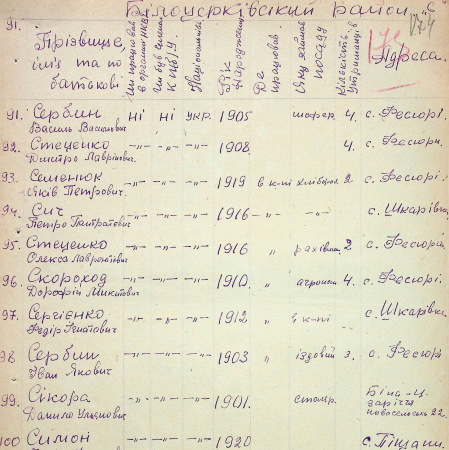 Білоцерківский район
91.
Прізвище, ім'я та по батькові
Чи працював в органах НКВС
Чи був членом КП(б)У
Національність
Рік народження
Де працював
Яку займав посаду
Кількість утриманців
Адреса.
91. Сербин Василь Васильович ні ні укр. 1905 шофер 4. с. Фесюрі.
92. Стеценко Дмитро Лаврінович -"- -"- -"- 1908. 4. с. Фесюри.
93. Семенюк Яків Петрович -"- -"- -"- 1919 в к-пі хлібороб 2 с. Фесюрі.
94. Сич Петро -"- -"- -"- 1916 -"- -"- с. Шкарівка
95. Стеценко Олекса Лаврентіович -"- -"- -"- 1916 " рахівн. 2 с. Фесюри
96. Скороход Дорофій Микитович -"- -"- -"- 1910. " агроном 4. с. Фесюрі.
97. Сергієнко Федір Гнатович -"- -"- -"- 1912 " в к-пі с. Шкарівка
98 Сербин Іван Якович -"- -"- -"- 1903 " їздовий 3. с. Фесюрі
99. Сікора Данило Улянович -"- -"- -"- 1901. столяр. Біла-Ц. заріччя 22.
100 Симон -"- -"- -"- 1920 с. Піщани.